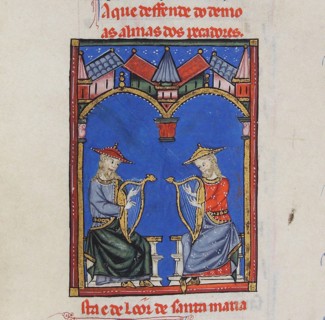 A que deffende do demo
as almas dos pecadores.
sta e de Loor de santa maria